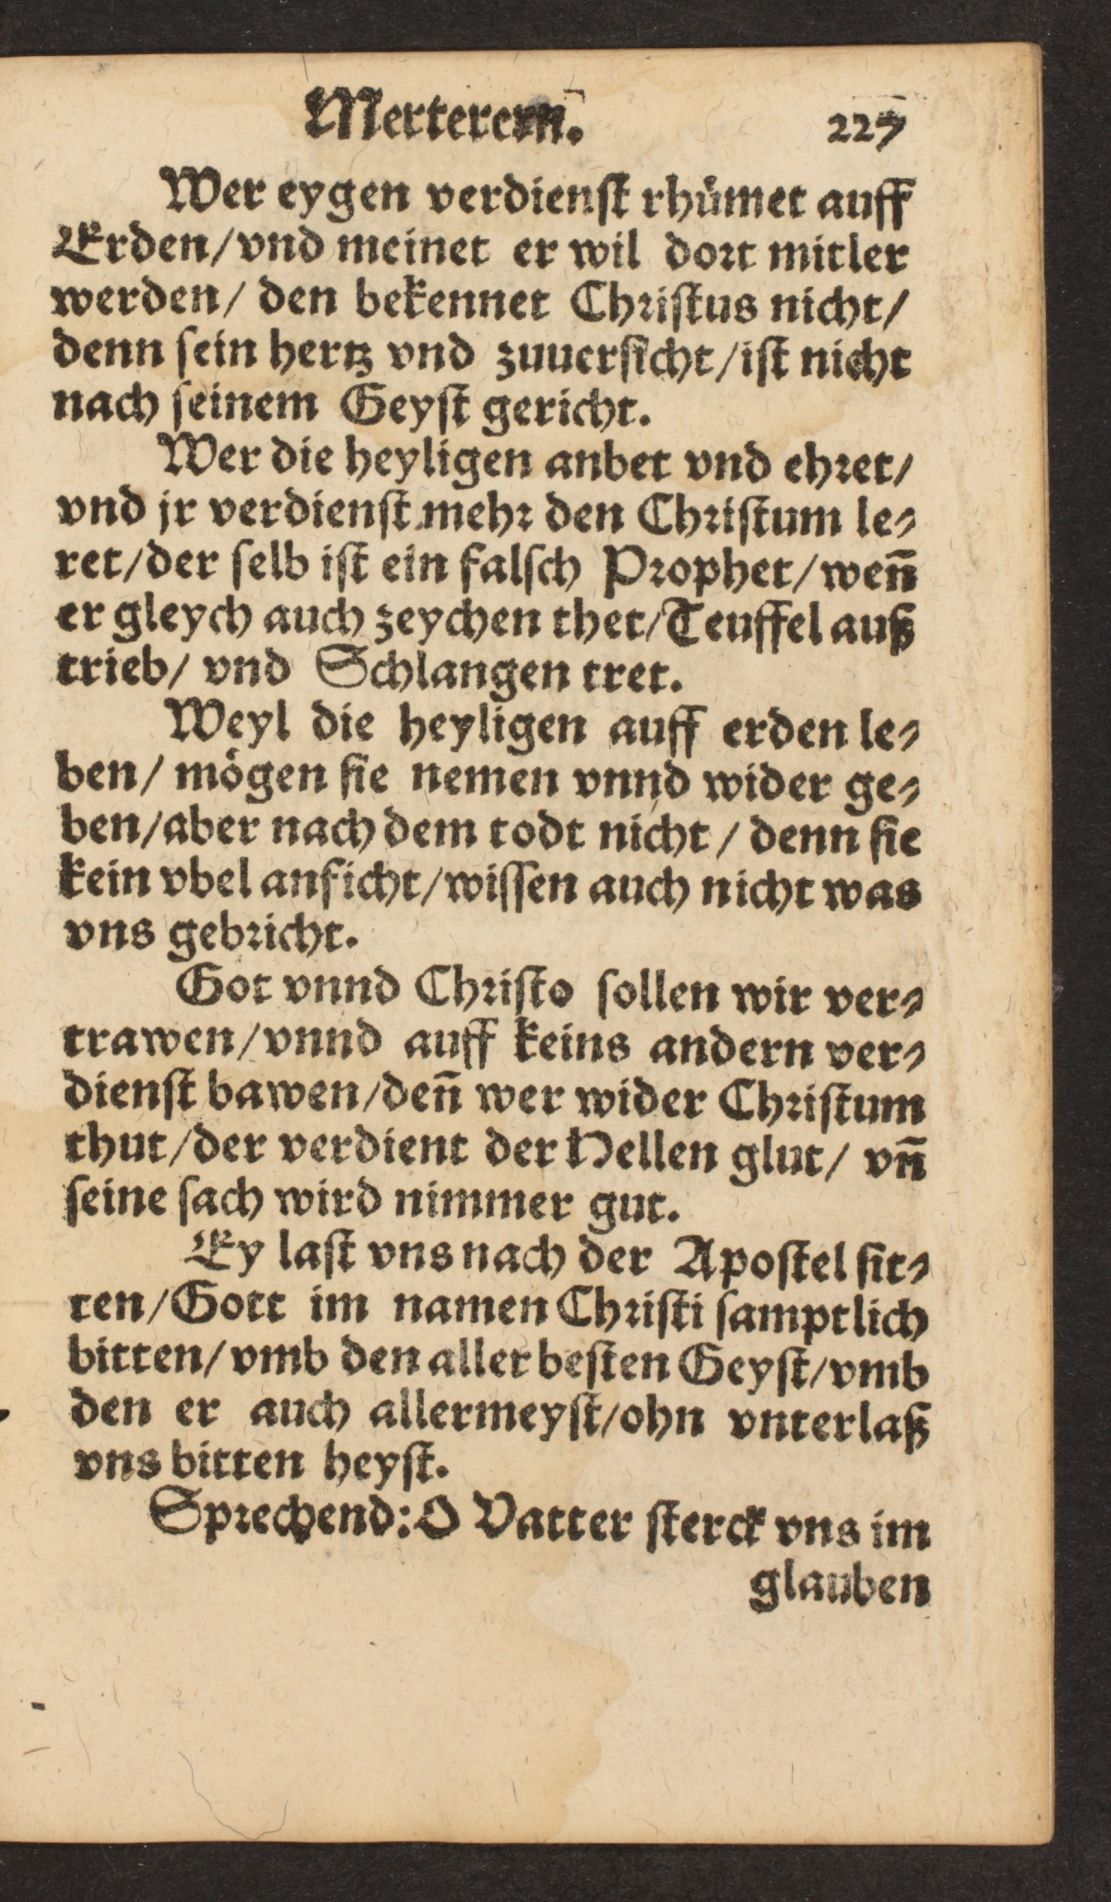 Merterern. 227
Wer eygen verdienst rhuͤmet auff
Erden/vnd meinet er wil dort mitler
werden/ den bekennet Christus nicht/
denn sein hertz vnd zuuersicht/ist nicht
nach seinem Geyst gericht.
Wer die heyligen anbet vnd ehret/
vnd jr verdienst mehr den Christum le⸗
ret/der selb ist ein falsch Prophet/wen̄
er gleych auch zeychen thet/Teuffel auß
trieb/ vnd Schlangen tret.
Weyl die heyligen auff erden le⸗
ben/ moͤgen sie nemen vnnd wider ge⸗
ben/aber nach dem todt nicht/ denn sie
kein vbel anficht/wissen auch nicht was
vns gebricht.
Got vnnd Christo sollen wir ver⸗
trawen/vnnd auff keins andern ver⸗
dienst bawen/den̄ wer wider Christum
thut/der verdient der Hellen glut/ vn̄
seine sach wird nimmer gut.
Ey last vns nach der Apostel sit⸗
ten/Gott im namen Christi samptlich
bitten/vmb den aller besten Geyst/vmb
den er auch allermeyst/ohn vnterlaß
vns bitten heyst.
Sprechend: O Vatter sterck vns im
glauben